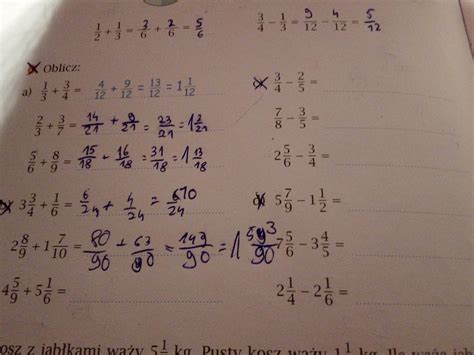 1/2 + 1/3 = 3/6 + 2/6 = 5/6
3/4 - 1/3 = 9/12 - 4/12 = 5/12
Oblicz:
a) 1/3 + 3/4 = 4/12 + 9/12 = 13/12 = 1 1/12
2/3 + 3/7 = 14/21 + 9/21 = 23/21 = 1 2/21
5/6 + 8/9 = 15/18 + 16/18 = 31/18 = 1 13/18
3 3/4 + 1/6 = 6/24 + 4/24 = 10/24
2 8/9 + 1 7/10 = 80/90 + 63/90 = 143/90 = 1 53/90
4 5/9 + 5 1/6 =
3/4 - 2/5 =
7/8 - 3/5 =
2 5/6 - 3/4 =
5 7/9 - 1 1/2 =
7 5/6 - 3 4/5 =
2 1/4 - 2 1/6 =
kosz z jabłkami waży 5 1/ kg. Pusty kosz waży 1 1/ kg. Ile ważą